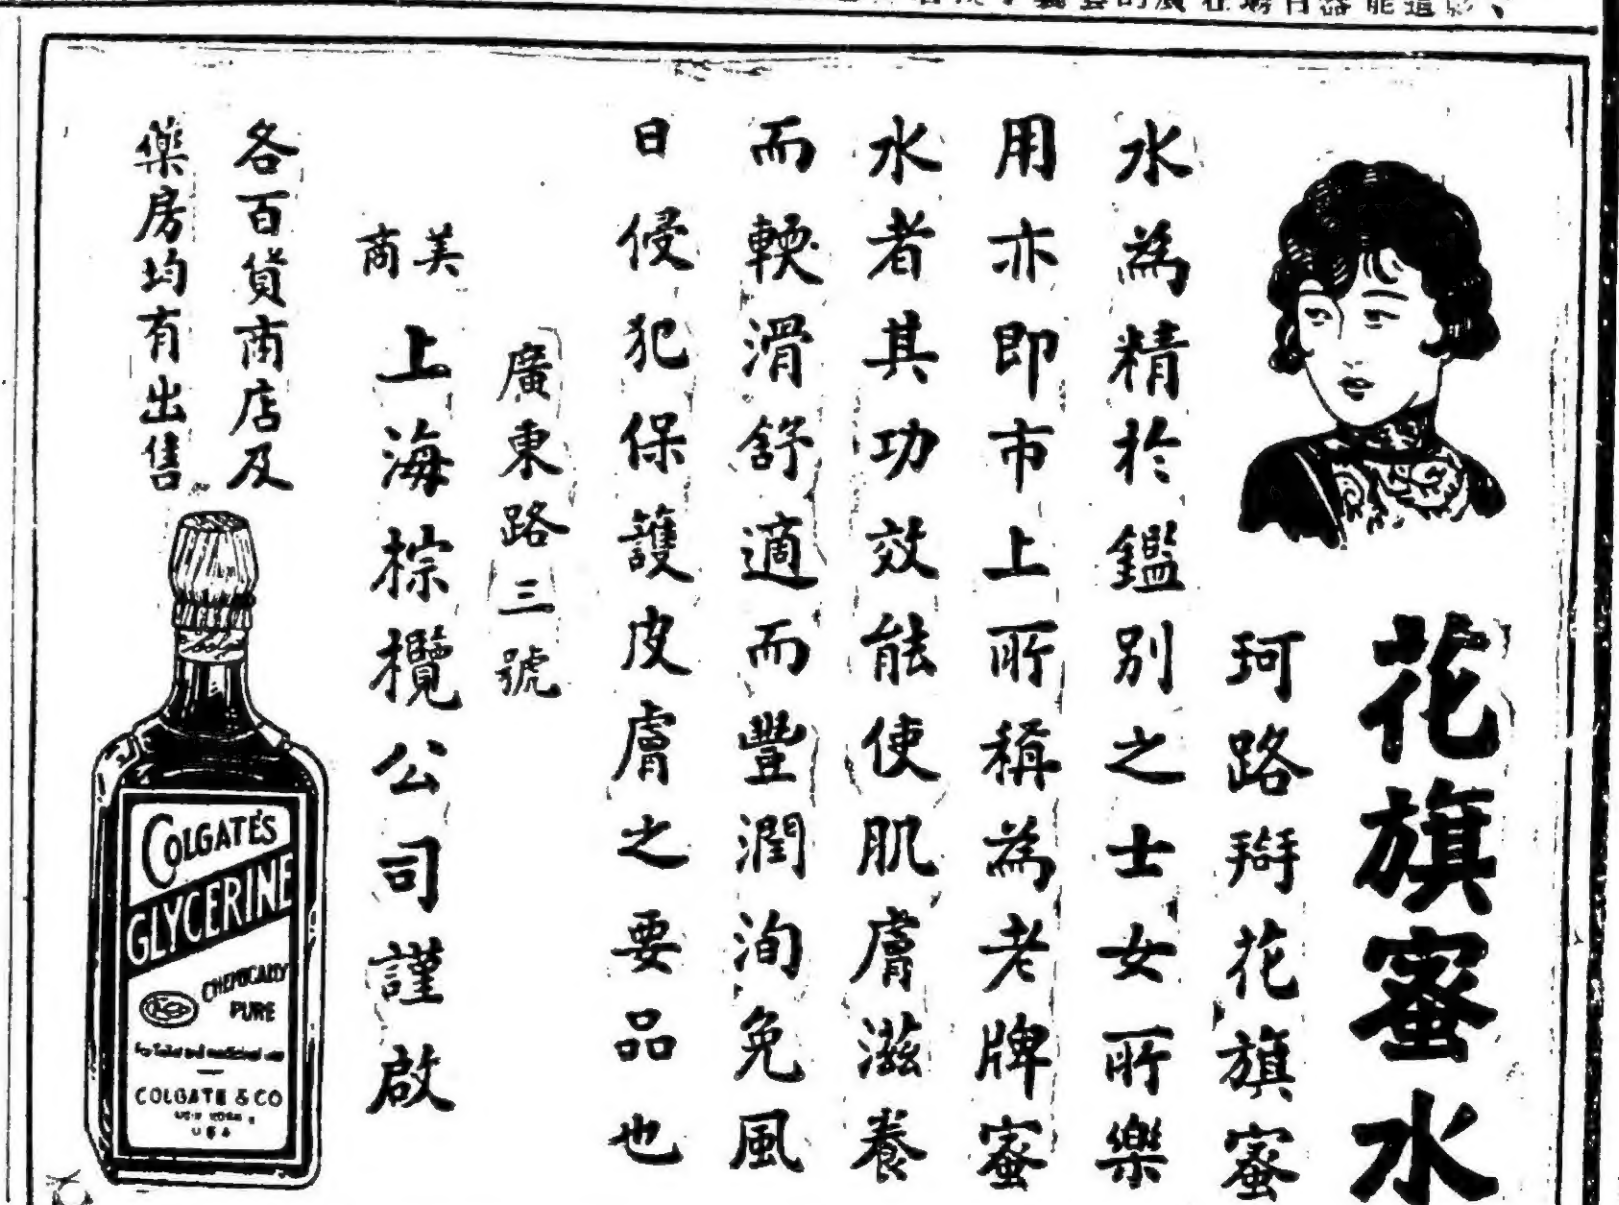 花旗蜜水
珂路搿花旗蜜
水為精於鑑別之士女所樂
用亦即市上所稱為老牌蜜
水者其功效能使肌膚滋養
而輭滑舒適而豐潤洵免風
日侵犯保護皮膚之要品也
廣東路三號
美商
上海棕欖公司謹啟
各百貨商店及
藥房均有出售
COLGATE'S
GLYCERINE
CHEMICALLY
PURE
For Toilet and medicinal use
COLGATE & CO
NEW YORK
U S A